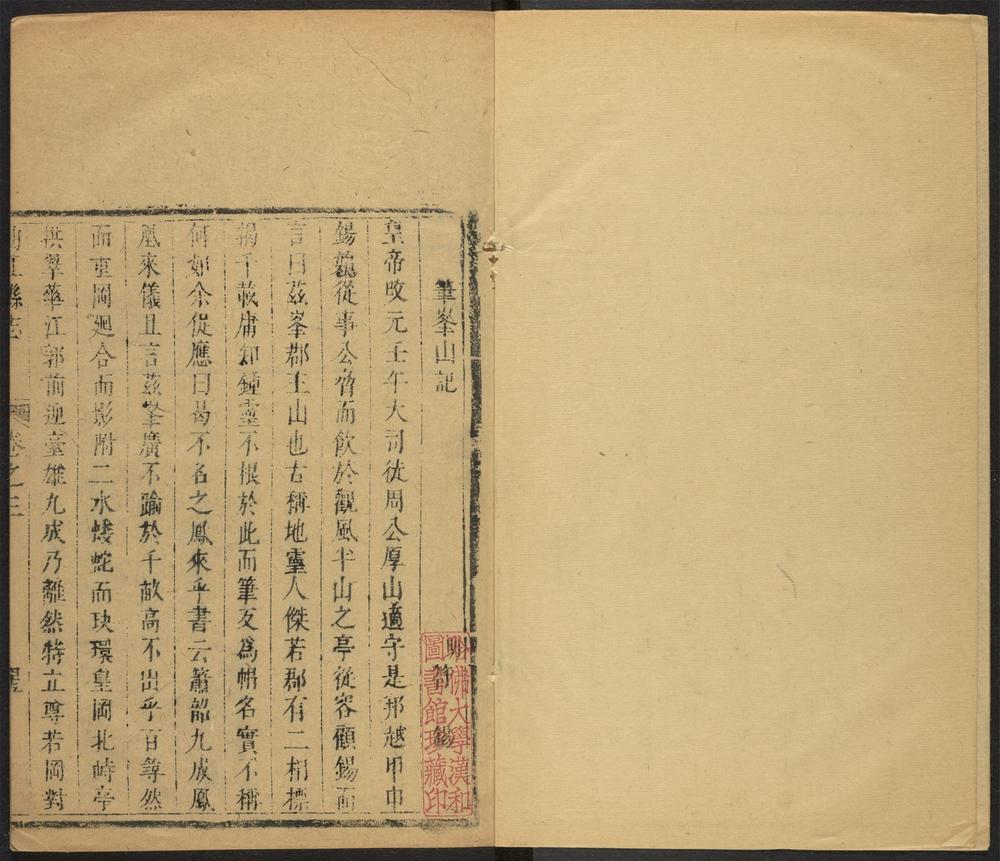 筆峯山記
明 符 錫
皇帝改元壬午大司徒周公厚山適字是邦越甲申
錫㒞從事公膂而飲於觀風半山之亭從容顧錫而
言曰茲峯郡主山也古稱地靈人傑若郡有二相標
揭千載庸卸鍾靈不根於此而筆友爲㡌名實不稱
何如余從應曰曷不名之鳳來乎書云簫韶九成鳳
凰來儀且言茲峯廣不踰於千畝高不出乎百尋然
而重岡廻合而影附二水蜲蛇而玦環皇岡北峙亭
拱翠華江郭前迎臺雄九成乃離然特立尊若岡對
曲江縣志 卷之三
哈佛大學漢和圖書館珍藏印